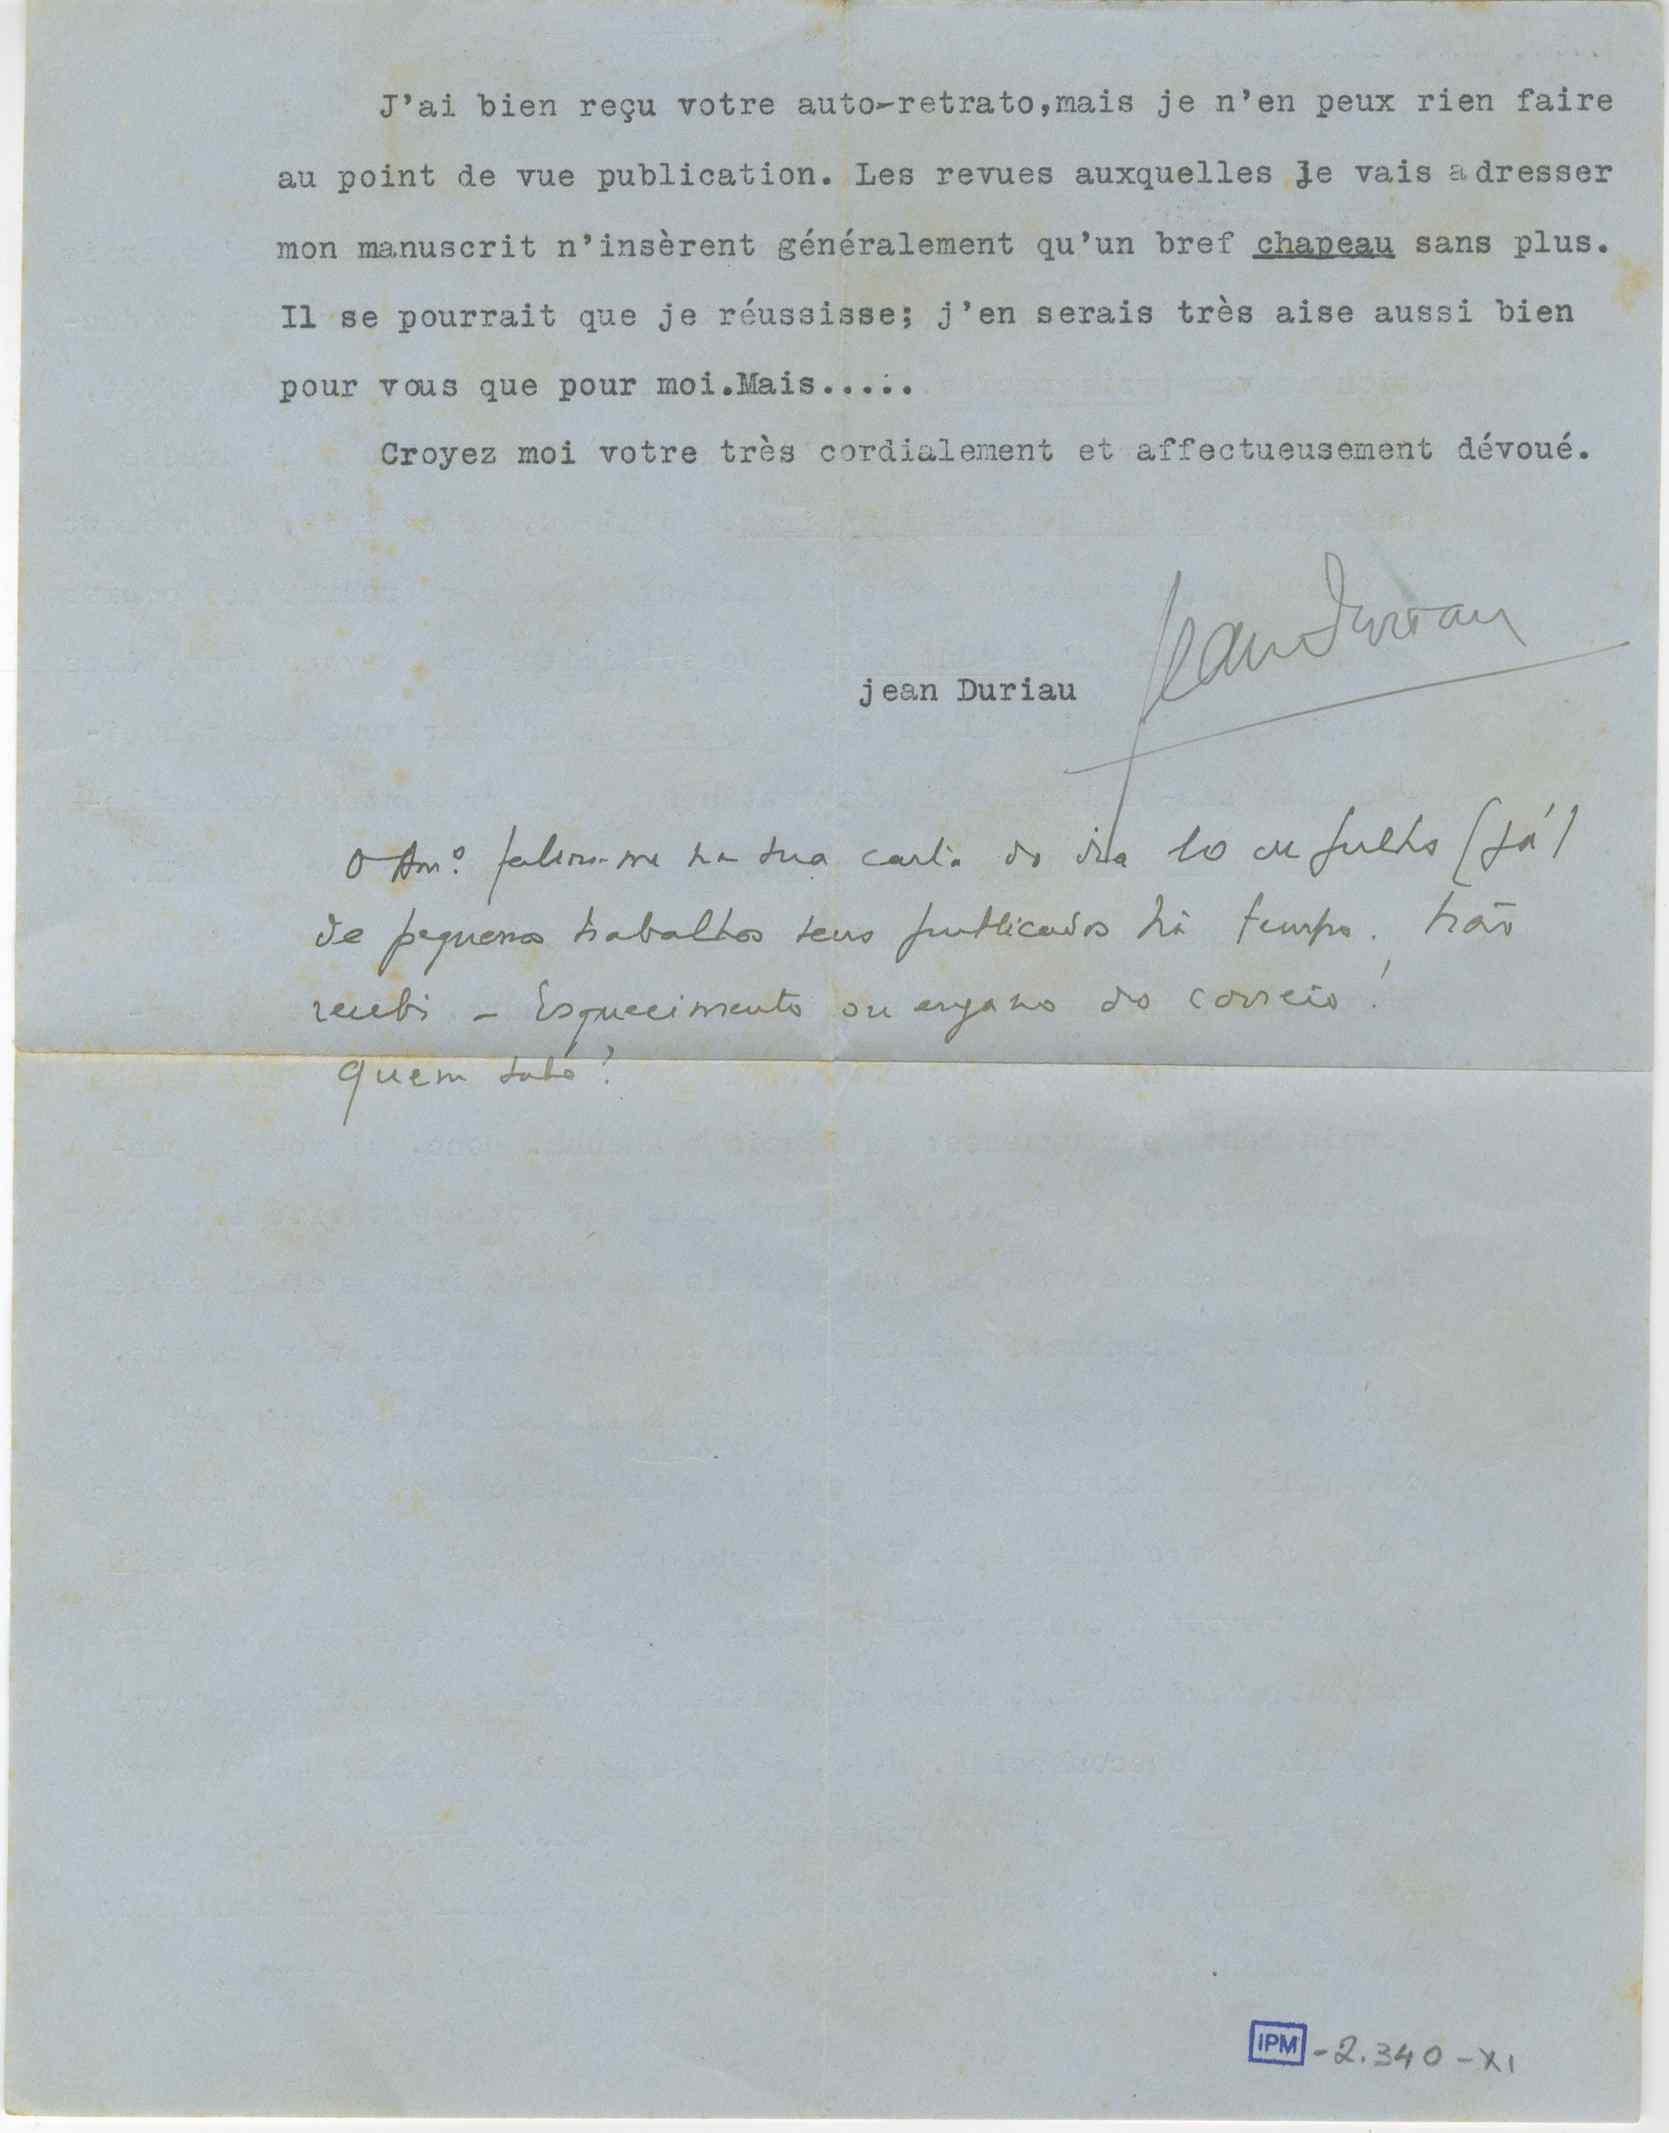 J'ai bien reçu votre auto-retrato,mais je n'en peux rien faire
au point de vue publication. Les revues auxquelles je vais adresser
mon manuscrit n'insèrent généralement qu'un bref chapeau sans plus.
Il se pourrait que je réussisse; j'en serais très aise aussi bien
pour vous que pour moi.Mais.....
Croyez moi votre très cordialement et affectueusement dévoué.
Jean Duriau
jean Duriau
O Amº. falou-me na sua carta do dia 10 de Julho (já)
de pequenos trabalhos seus publicados há tempo. Não
recebi - Esquecimento ou engano do correio!
Quem sabe?
IPM -2.340-XI